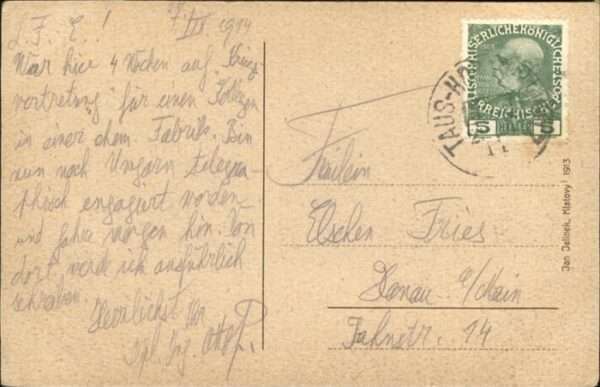 L. F. E.!
7. III 1914
War hier 4 Wochen auf
vertretung" für einen Kollegen
in einer chem. Fabrik. Bin
nun nach Ungarn telegra-
phisch engagiert worden
und fahre morgen hin. Von
dort werde ich ausführlich
schreiben.
Herzlichst Ihr
Dpl. Ing. Otto P.
Fräulein
Elschen Fries
Hanau a/Main
Jahnstr. 14
KAISERLICHE KÖNIGLICHE ÖSTERREICHISCHE POST
5 5
TAUS
Jan Jelinek, Klatovy 1913